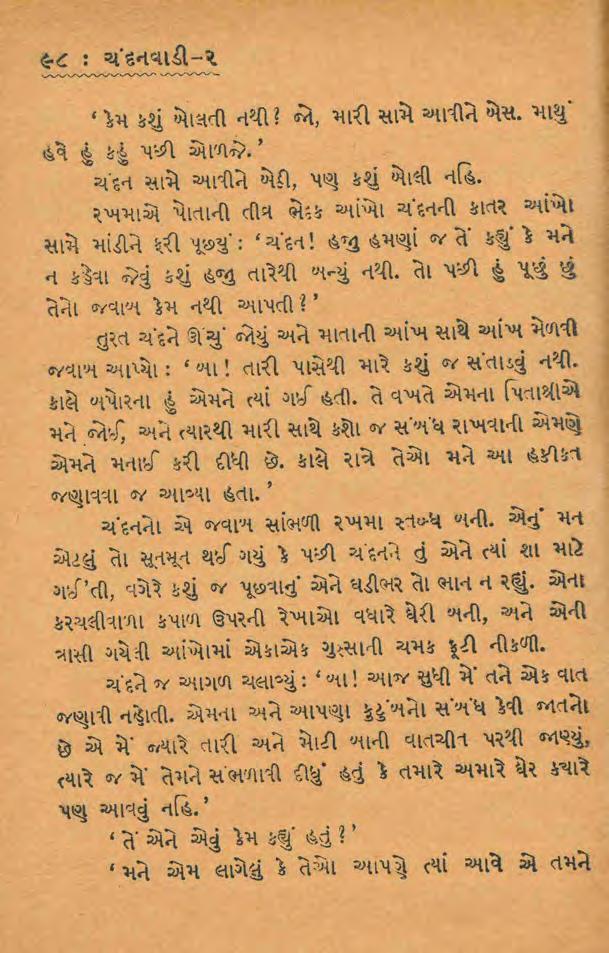 ૯૮ : ચંદનવાડી-૨
‘ કેમ કશું બોલતી નથી? જો, મારી સામે આવીને બેસ. માથું
હવે હું કહું પછી ઓળજે.’
ચંદન સામે આવીને બેઠી, પણ કશું બોલી નહિ.
રખમાએ પોતાની તીવ્ર ભેદક આંખો ચંદનની કાતર આંખો
સામે માંડીને ફરી પૂછ્યું : ‘ચંદન! હજી હમણાં જ તેં કહ્યું કે મને
ન કહેવા જેવું કશું હજી તારેથી બન્યું નથી. તો પછી હું પૂછું છું
તેનો જવાબ કેમ નથી આપતી?’
તુરત ચંદને ઊંચું જોયું અને માતાની આંખ સાથે આંખ મેળવી
જવાબ આપ્યો : ‘બા! તારી પાસેથી મારે કશું જ સંતાડવું નથી.
કાલે બપોરના હું એમને ત્યાં ગઈ હતી. તે વખતે એમના પિતાશ્રીએ
મને જોઈ, અને ત્યારથી મારી સાથે કશો જ સંબંધ રાખવાની એમણે
એમને મનાઈ કરી દીધી છે. કાલે રાત્રે તેઓ મને આ હકીકત
જણાવવા જ આવ્યા હતા.’
ચંદનનો એ જવાબ સાંભળી રખમા સ્તબ્ધ બની. એનું મન
એટલું તો સૂનમૂન થઈ ગયું કે પછી ચંદનને તું એને ત્યાં શા માટે
ગઈ'તી, વગેરે કશું જ પૂછવાનું એને ઘડીભર તો ભાન ન રહ્યું. એના
કરચલીવાળા કપાળ ઉપરની રેખાઓ વધારે ઘેરી બની, અને એની
ત્રાસી ગયેલી આંખોમાં એકાએક ગુસ્સાની ચમક ફૂટી નીકળી.
ચંદને જ આગળ ચલાવ્યું : ‘બા! આજ સુધી મેં તને એક વાત
જણાવી નહોતી. એમના અને આપણા કુટુંબનો સંબંધ કેવી જાતનો
છે એ મેં જ્યારે તારી અને મોટી બાની વાતચીત પરથી જાણ્યું,
ત્યારે જ મેં તેમને સંભળાવી દીધું હતું કે તમારે અમારે ઘેર ક્યારે
પણ આવવું નહિ.’
‘તેં એને એવું કેમ કહ્યું હતું?’
‘મને એમ લાગેલું કે તેઓ આપણે ત્યાં આવે એ તમને